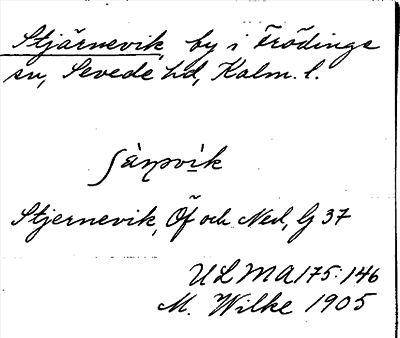 Stjärnevik, by i Frödinge
sn, Sevede hd, Kalm. l.
Stjernevik, Öf och Ned, G 37
ULMA 175:146
M. Wilke 1905